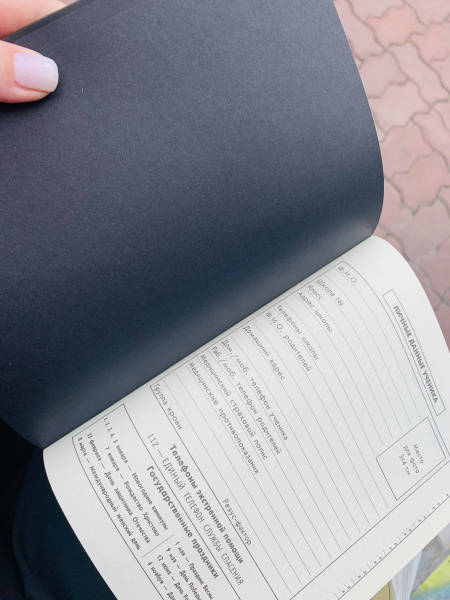 ЛИЧНЫЕ ДАННЫЕ УЧЕНИКА
Ф.И.О.
Школа №
Класс
Адрес школы
Телефоны школы
Ф.И.О. родителей
Домашний адрес
Дом./моб. телефон ученика
Раб./моб. телефон родителей
Медицинский страховой полис
Медицинские противопоказания
Группа крови
Резус-фактор
Место
для фото
3х4 см
Телефоны экстренной помощи
112 — ЕДИНЫЙ ТЕЛЕФОН СЛУЖБЫ СПАСЕНИЯ
Государственные праздники
1, 2, 3, 4, 5 января — Новогодние каникулы
7 января — Рождество Христово
23 февраля — День защитника Отечества
8 марта — Международный женский день
1 мая — Праздник Весны
9 мая — День Победы
12 июня — День
4 ноября — День